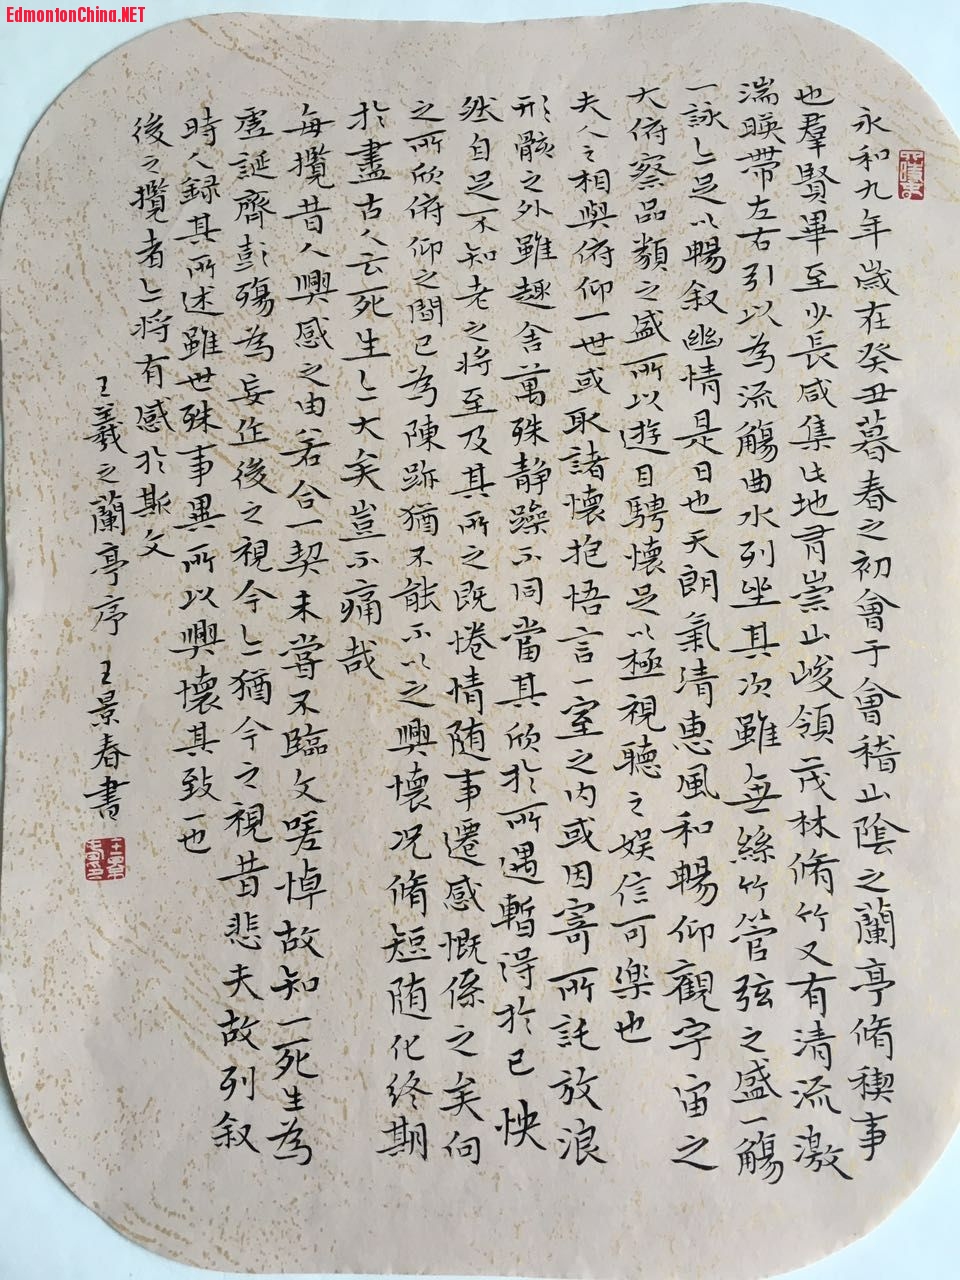 EdmontonChina.NET
永和九年歲在癸丑暮春之初會于會稽山陰之蘭亭脩稧事
也羣賢畢至少長咸集此地有崇山峻領茂林脩竹又有清流激
湍暎帶左右引以為流觴曲水列坐其次雖無絲竹管弦之盛一觴
一詠亦足以暢叙幽情是日也天朗氣清惠風和暢仰觀宇宙之
大俯察品類之盛所以遊目騁懷足以極視聽之娱信可樂也
夫人之相與俯仰一世或取諸懷抱悟言一室之内或因寄所託放浪
形骸之外雖趣舍萬殊静躁不同當其欣於所遇暫得於己怏
然自足不知老之將至及其所之既惓情随事遷感慨係之矣向
之所欣俯仰之間已為陳跡猶不能不以之興懷况脩短随化終期
於盡古人云死生亦大矣豈不痛哉
每攬昔人興感之由若合一契未嘗不臨文嗟悼故知一死生為
虛誕齊彭殤為妄作後之視今亦猶今之視昔悲夫故列叙
時人録其所述雖世殊事異所以興懷其致一也
後之攬者亦將有感於斯文
王羲之蘭亭序 王景春書